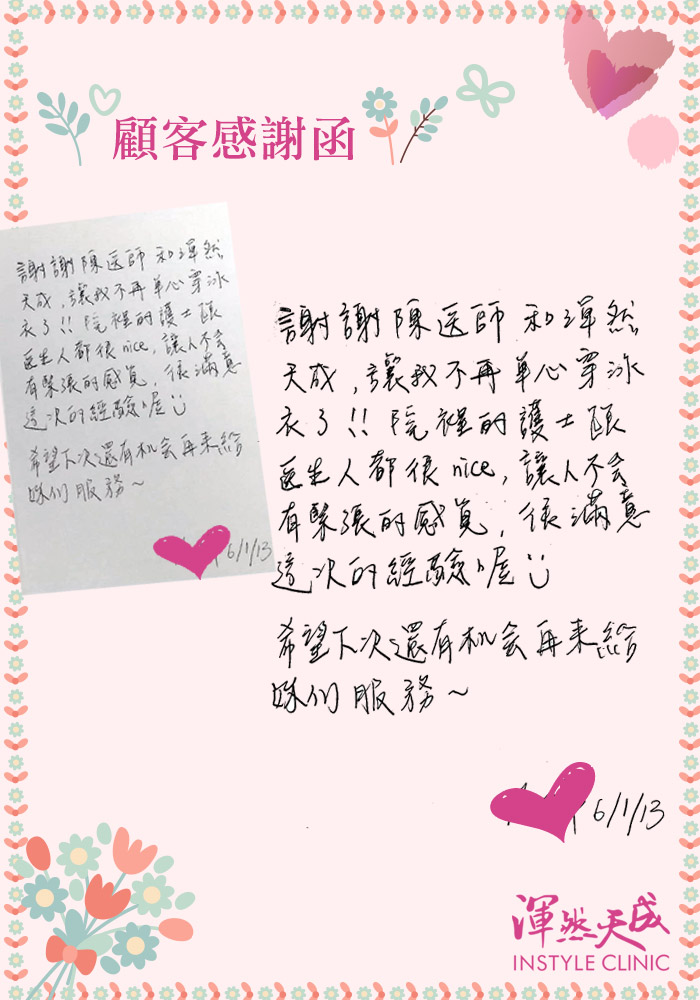 顧客感謝函
謝謝陳医師和渾然
天成，讓我不再單心穿泳
衣了!! 院裡的護士跟
医生人都很nice，讓人不会
有緊張的感覚，很滿意
這次的經驗喔
希望下次還有机会再来給
妳们服務~
6/1/13
謝謝陳医師和渾然
天成，讓我不再單心穿泳
衣了!! 院裡的護士跟
医生人都很nice，讓人不会
有緊張的感覚，很滿意
這次的經驗喔
希望下次還有机会再来給
妳们服務~
6/1/13
渾然天成
INSTYLE CLINIC